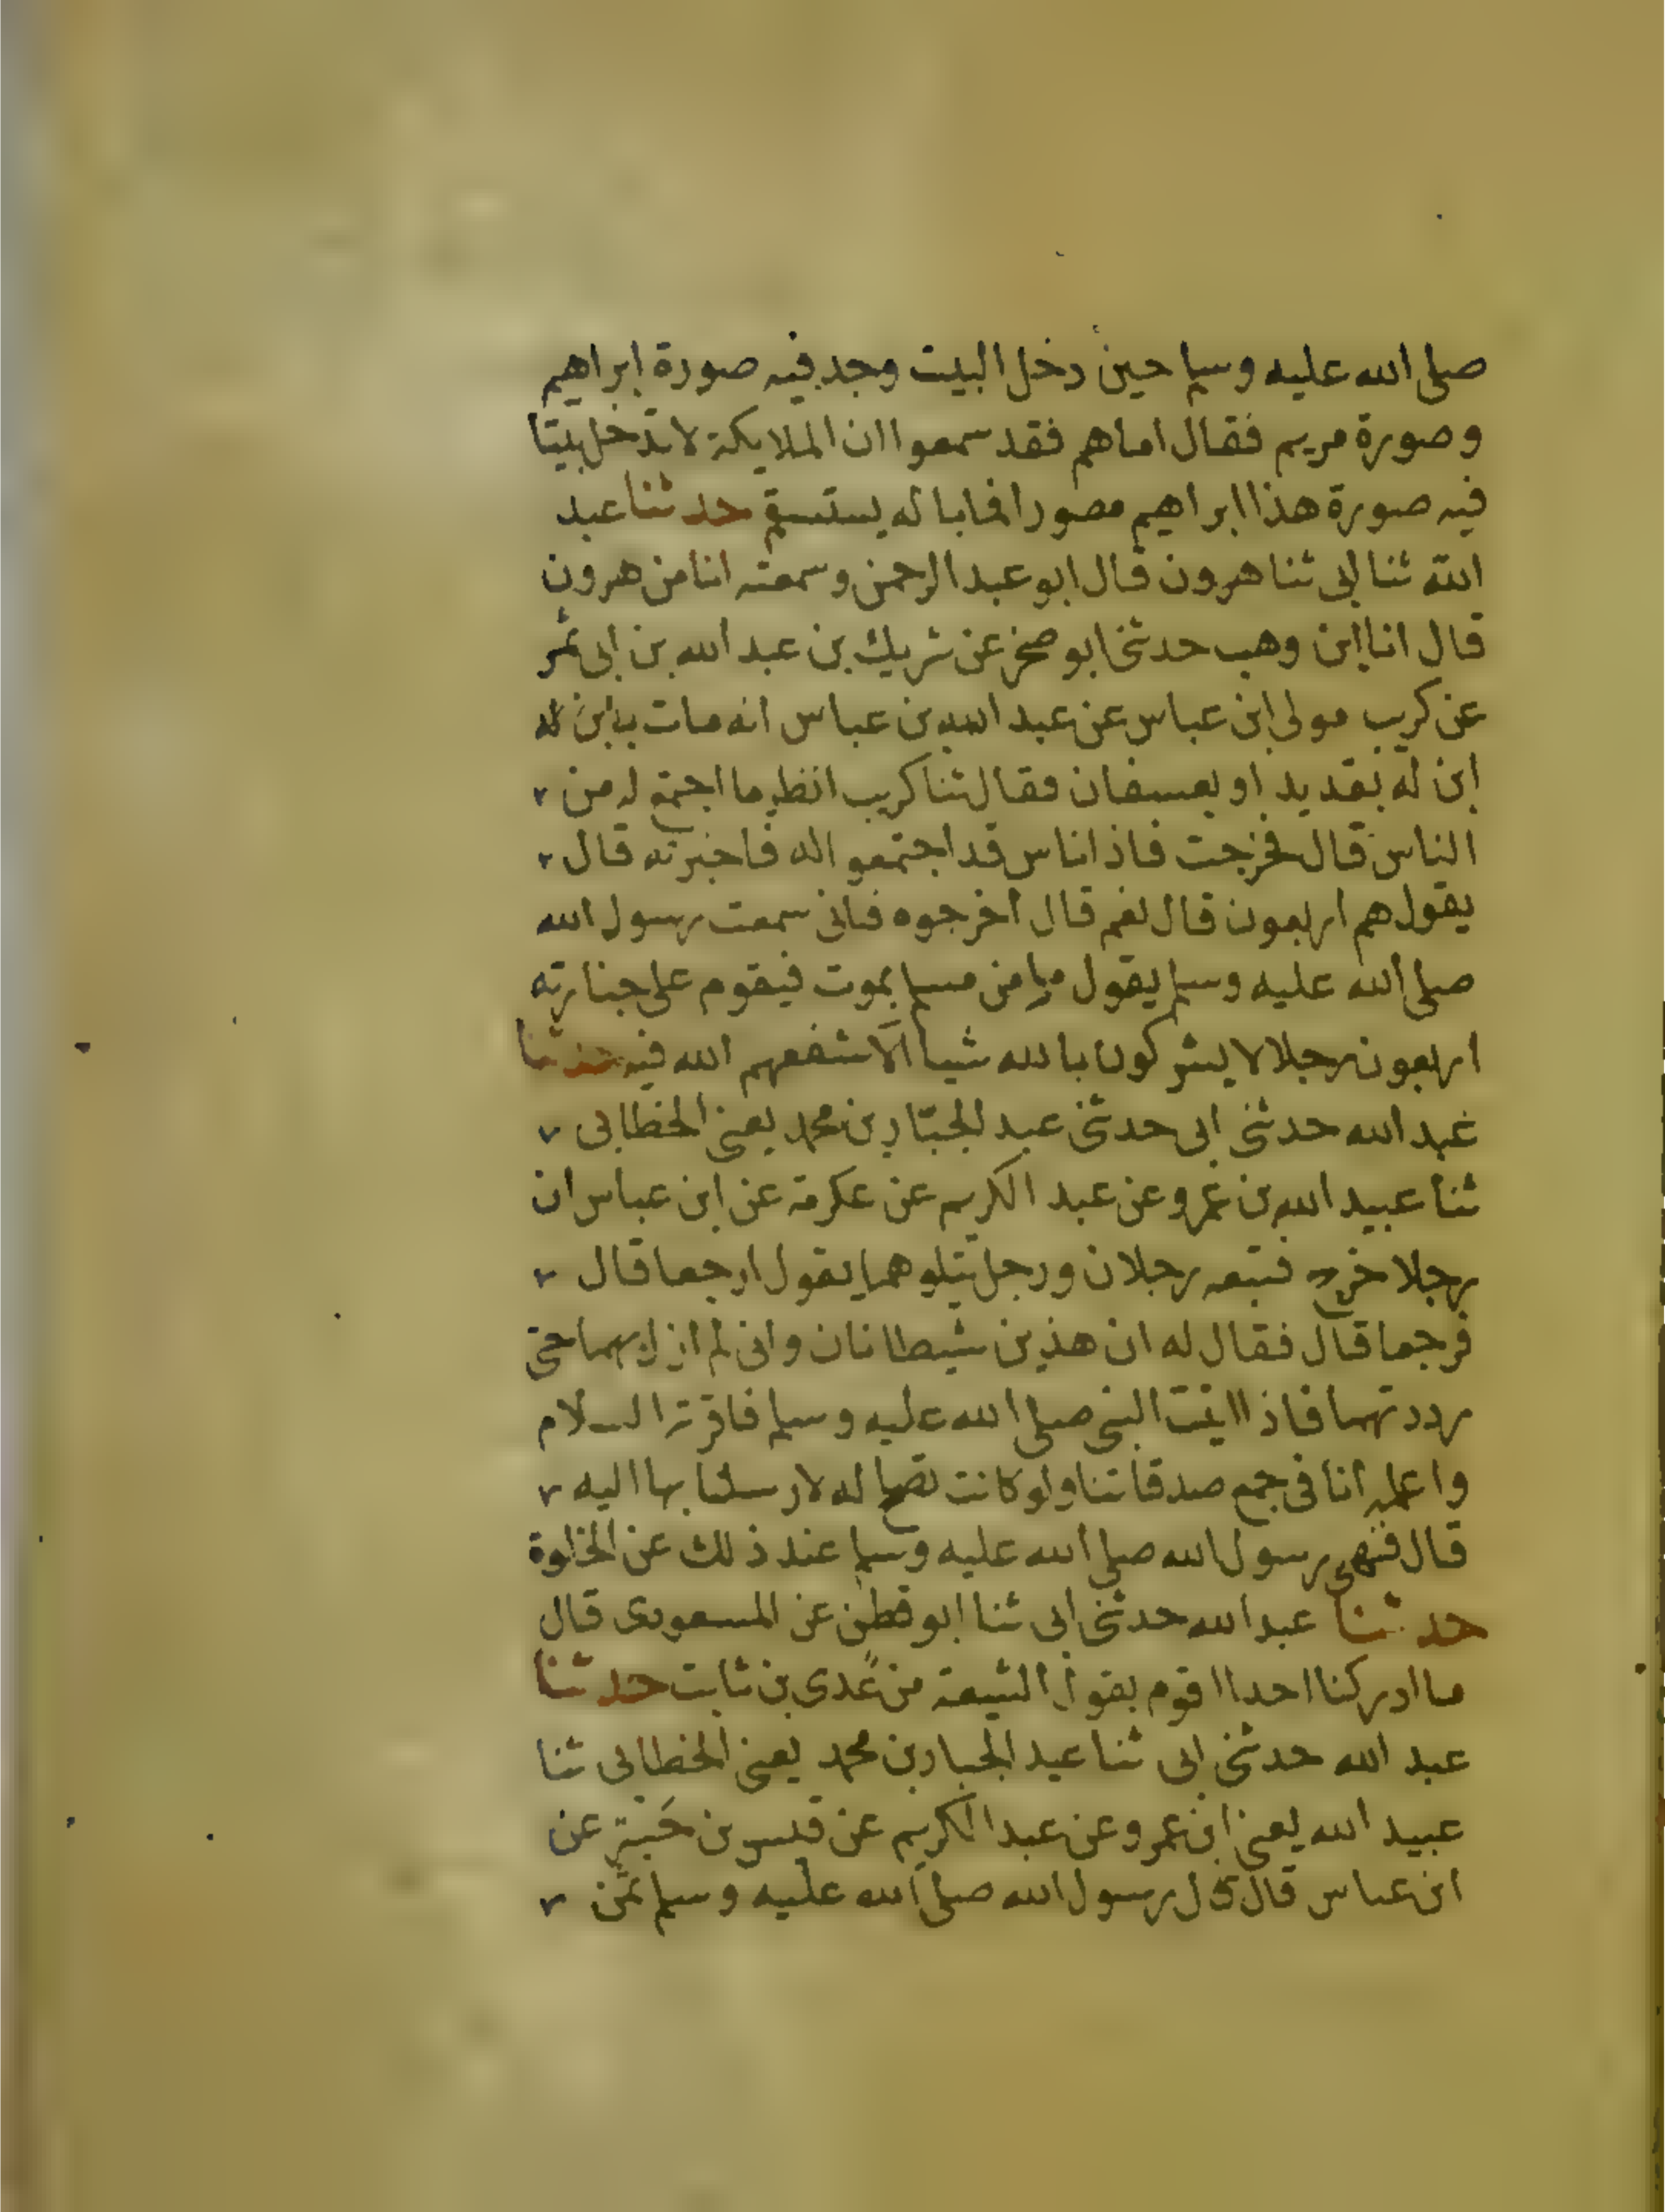 صلى الله عليه وسلم حين دخل البيت وجد فيه صورة ابراهيم
وصورة مريم فقال اما هم فقد سمعوا ان الملايكة لا تدخل بيتا
فيه صورة هذا ابراهيم مصورا فما باله يستقسم حدثنا عبد
الله ثنا ابى ثنا هرون قال ابو عبد الرحمن وسمعته انا من هرون
قال انا ابن وهب حدثنى ابو صخر عن شريك بن عبد الله بن ابى نمر
عن كريب مولى ابن عباس عن عبد الله بن عباس انه مات ابن له
ابن له بقديد او بعسفان فقال ثنا كريب انظر ما اجتمع له من
الناس قال فخرجت فاذا ناس قد اجتمعوا له فاخبرته قال
يقول هم اربعون قال نعم قال اخرجوه فانى سمعت رسول الله
صلى الله عليه وسلم يقول ما من مسلم يموت فيقوم على جنازته
اربعون رجلا لا يشركون بالله شيا الا شفعهم الله فيه حدثنا
عبد الله حدثنى ابى حدثنى عبد الجبّار بن محمد يعنى الخطابى
ثنا عبيد الله بن عمرو عن عبد الكريم عن عكرمة عن ابن عباس ان
رجلا خرج فتبعه رجلان ورجل يتلوهما يقول ارجعا قال
فرجعا قال فقال له ان هذين شيطانان وانى لم ازل بهما حتى
رددتهما فاذا اتيت النبى صلى الله عليه وسلم فاقرئه السلام
واعلمه انا فى جمع صدقاتنا ولو كانت تصلح له لارسلنا بها اليه
قال فنهى رسول الله صلى الله عليه وسلم عند ذلك عن الخلوة
حدثنا عبد الله حدثنى ابى ثنا ابو قطن عن المسعودى قال
ما ادركنا احدا اقوم بقول الشيعة من عدى بن ثابت حدثنا
عبد الله حدثنى ابى ثنا عبد الجبار بن محمد يعنى الخطابى ثنا
عبيد الله يعنى ابن عمرو عن عبد الكريم عن قيس بن حَبتر عن
ابن عباس قال قال رسول الله صلى الله عليه وسلم ثمن